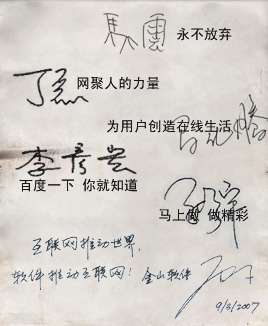 馬雲 永不放弃
丁磊 网聚人的力量
为用户创造在线生活 马化腾
李彦宏
百度一下 你就知道
马上做 做精彩
互联网推动世界，
软件推动互联网！金山软件
9/3/2007